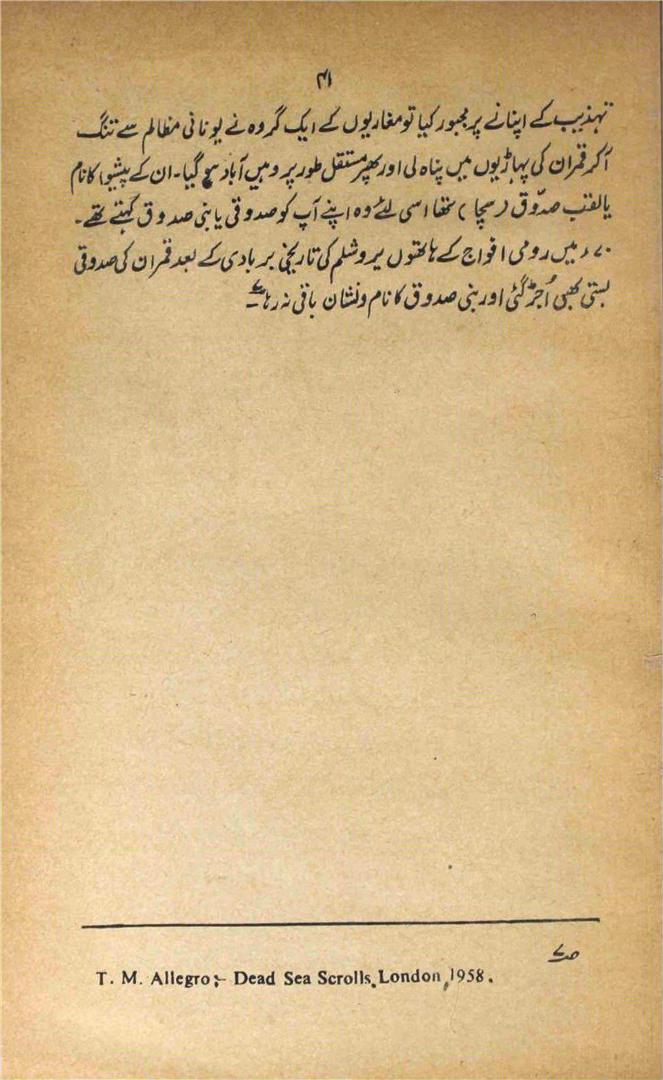 ۴۱
تہذیب کے اپنانے پر مجبور کیا تو مغاریوں کے ایک گروہ نے یونانی مظالم سے تنگ
آکر قمران کی پہاڑیوں میں پناہ لی اور پھر مستقل طور پر وہیں آباد ہو گیا۔ ان کے پیشوا کا نام
یا لقب صدّوق (سچا) تھا اسی لئے وہ اپنے آپ کو صدوقی یا بنی صدوق کہتے تھے۔
۷۰ء میں رومی افواج کے ہاتھوں یروشلم کی تاریخی بربادی کے بعد قمران کی صدوقی
بستی بھی اُجڑ گئی اور بنی صدوق کا نام و نشان باقی نہ رہا۔
T. M. Allegro:- Dead Sea Scrolls, London, 1958.